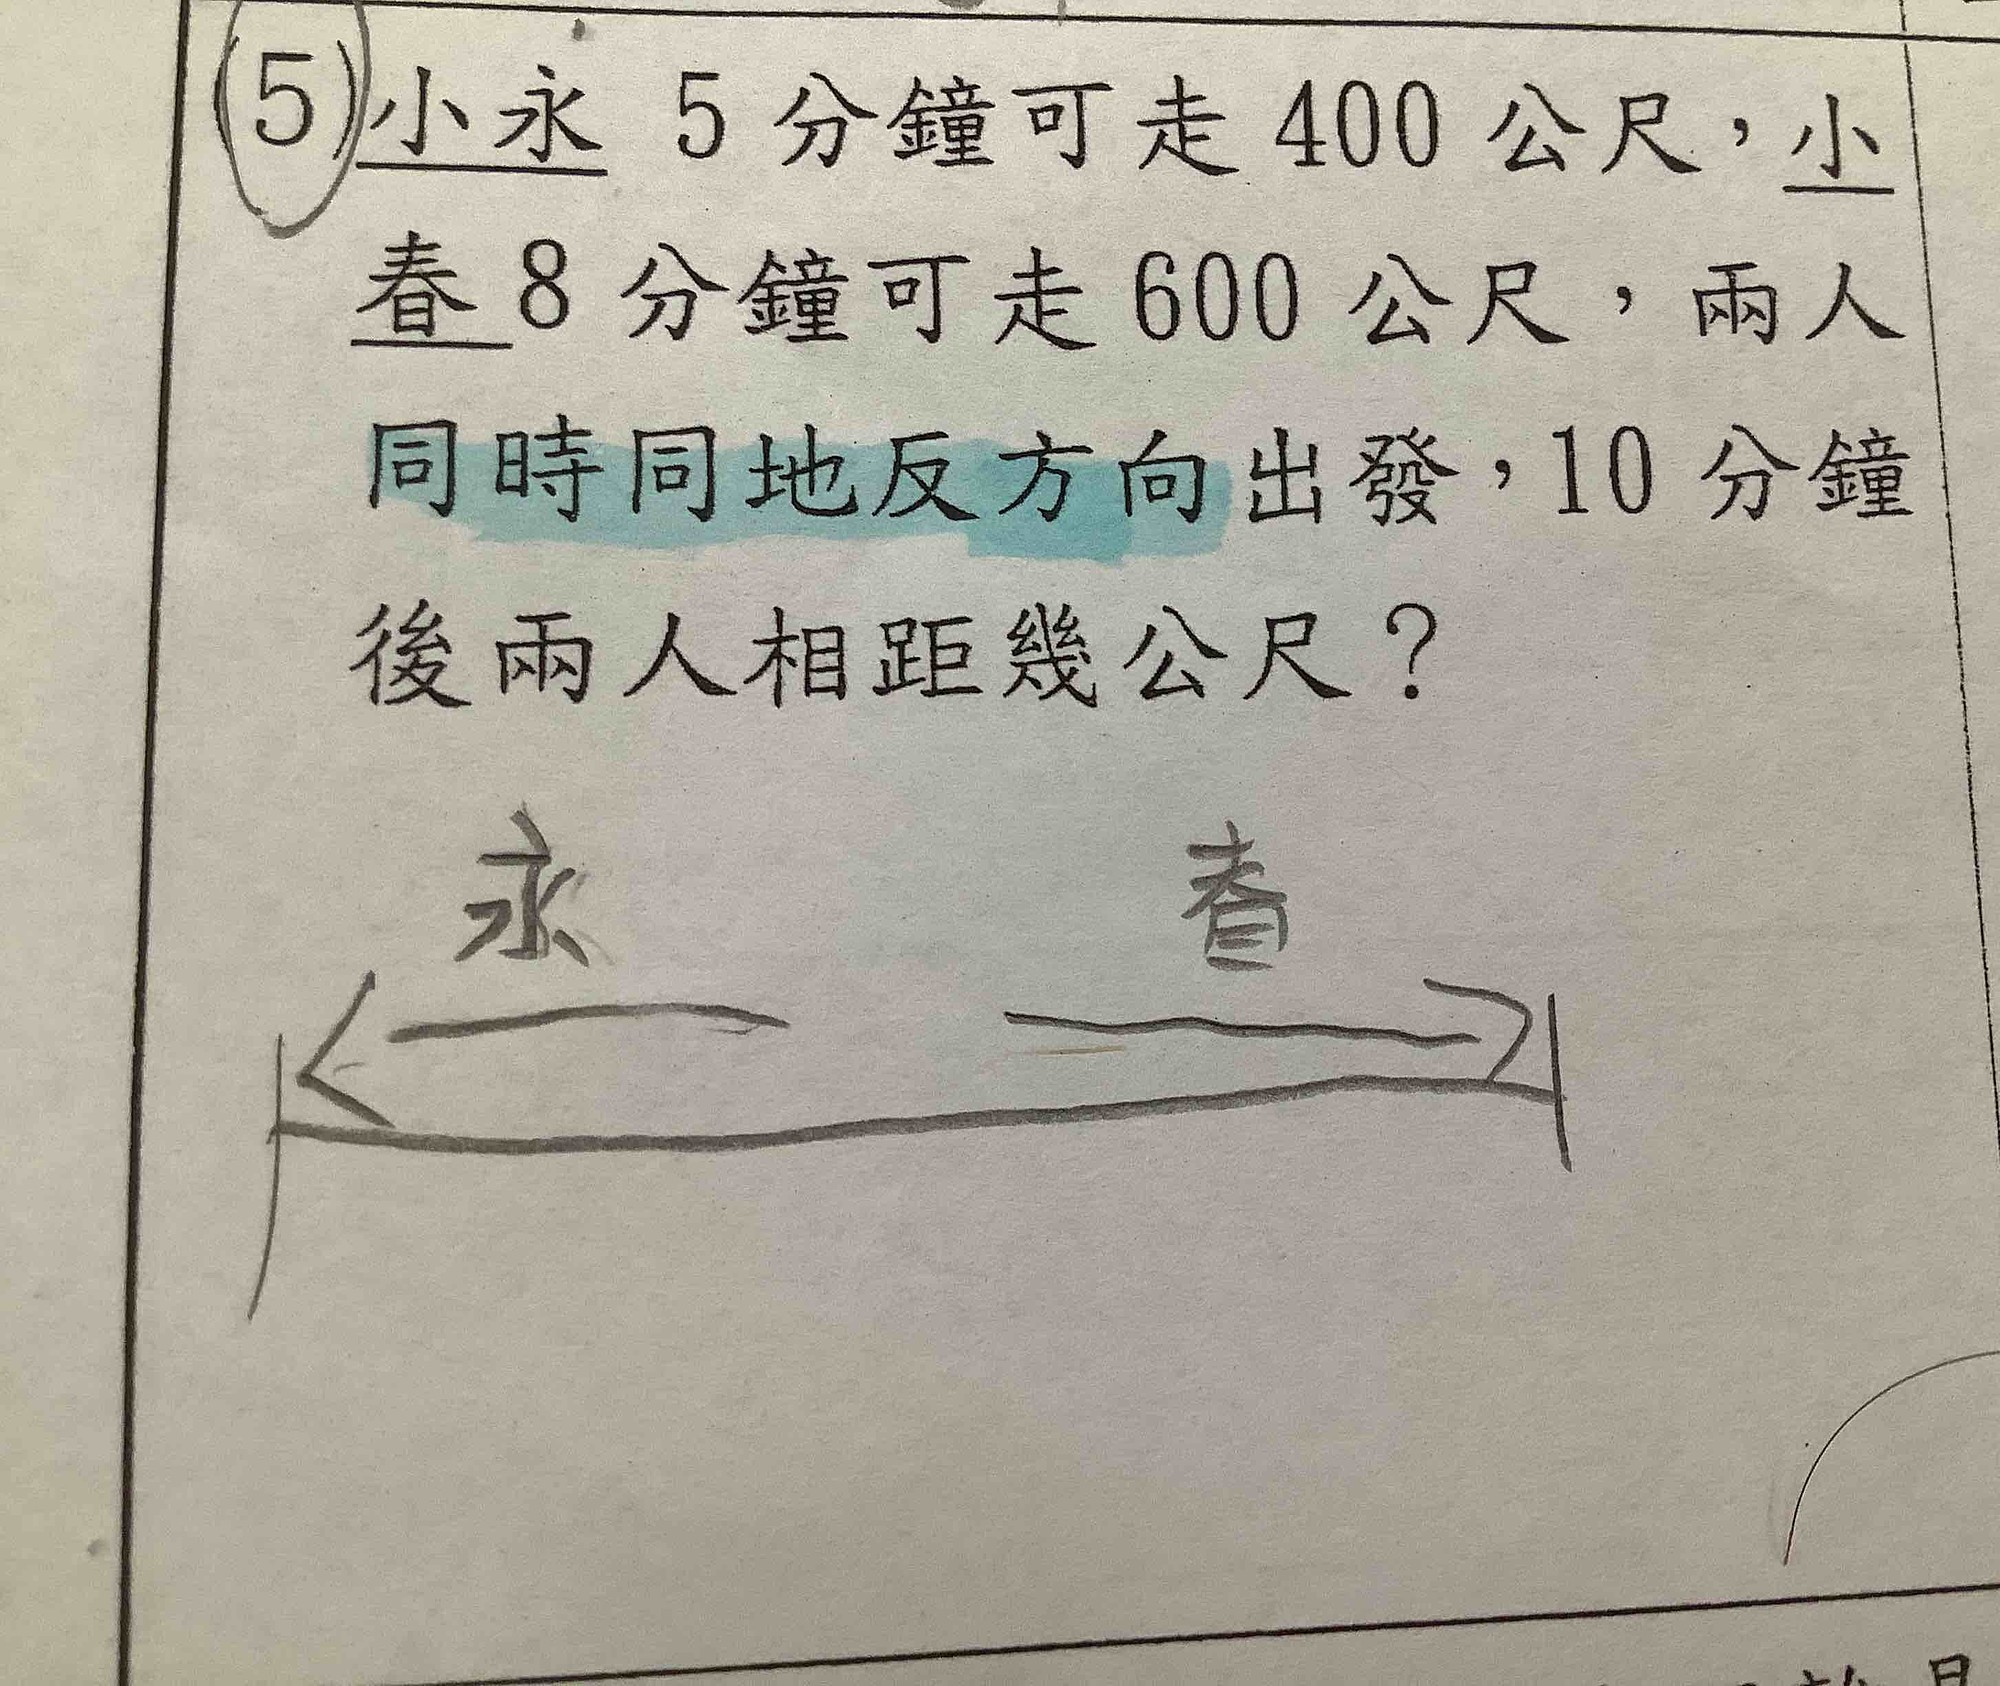 (5)小永 5 分鐘可走 400 公尺，小
春 8 分鐘可走 600 公尺，兩人
同時同地反方向出發，10 分鐘
後兩人相距幾公尺？
永 春